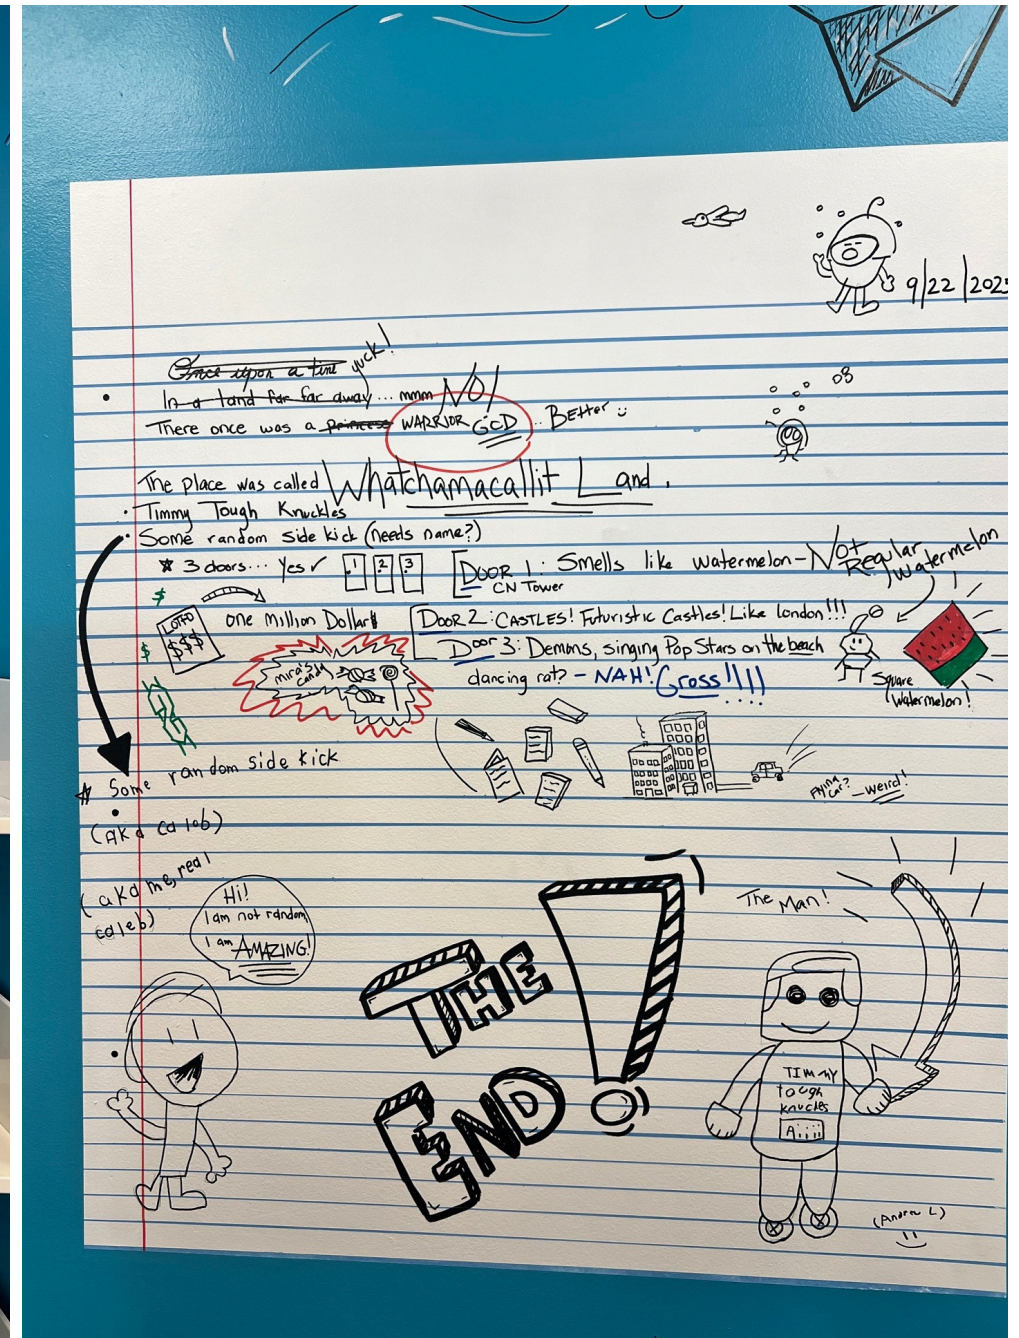 9/22/202
Once upon a time yuck!
In a land far far away... mmm NO!
There once was a princess WARRIOR GOD .. BeTTer
The place was called Whatchamacallit Land.
Timmy Tough Knuckles
Some random side kick (needs name?)
3 doors... Yes ✓ 1 2 3
DOOR 1: Smells like watermelon - Not Regular Watermelon
CN Tower
LOTTO
$$$
$
$
one Million Dollars
DOOR 2: CASTLES! Futuristic Castles! Like london!!!
Door 3: Demons, singing Pop Stars on the beach
dancing rat? - NAH! Gross!!!!
mira's candy
Square Watermelon!
Some random side kick
(aka calob)
(aka me, real caleb)
Flying car? - weird!
Hi!
I am not random,
I am AMAZING!
THE END!
The Man!
TIMMY
tough
knuckles
Aiiii
(Andrew L)